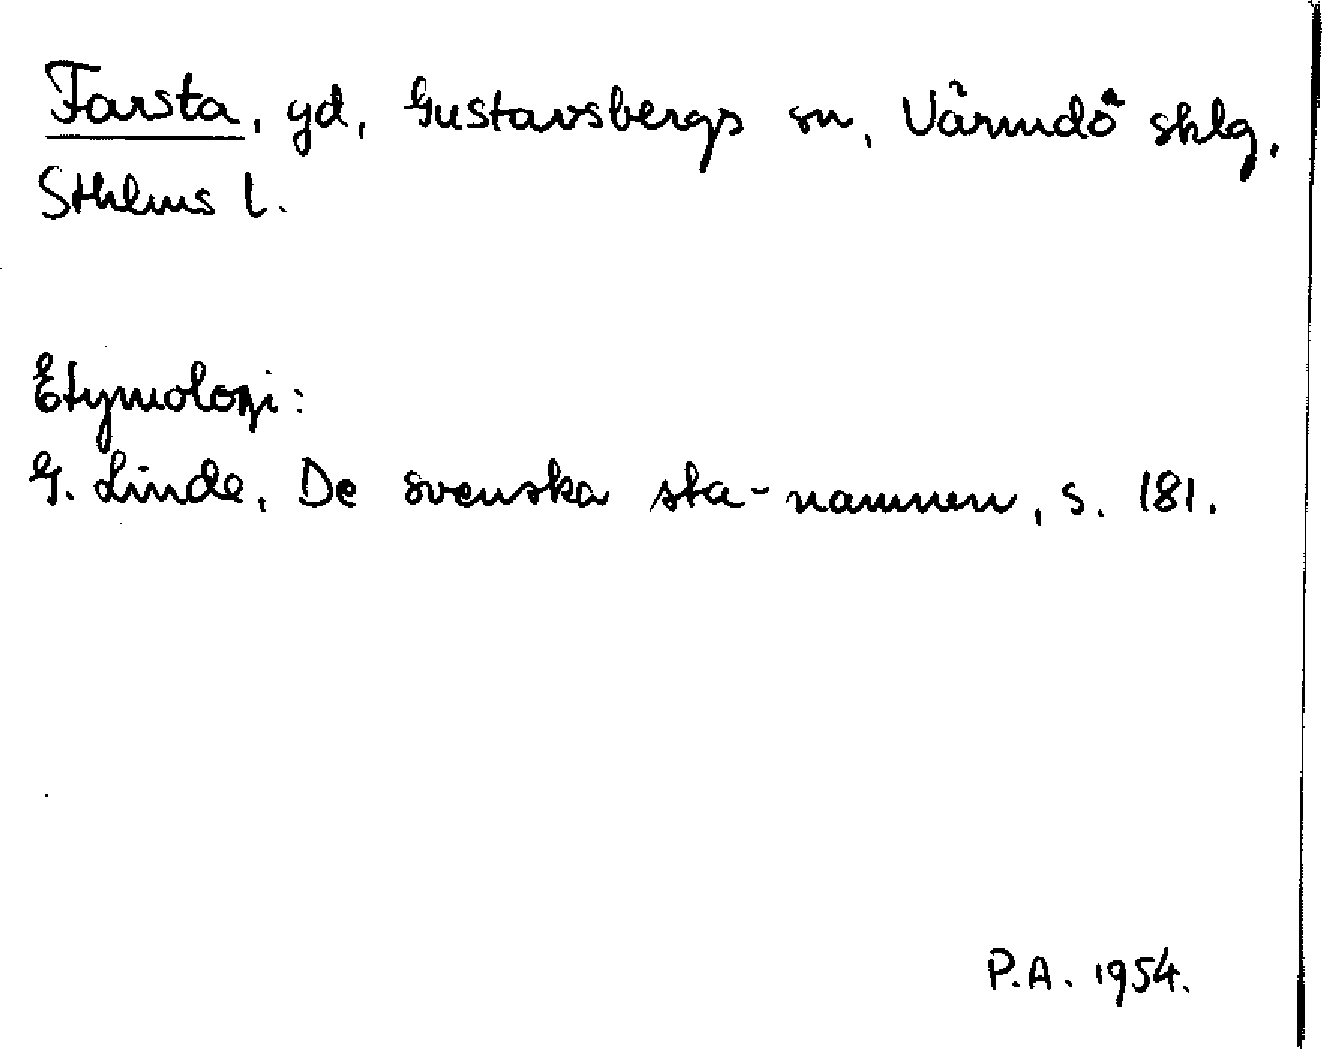 Farsta, gd, Gustavsbergs sn, Värmdö sklg,
Sthlms l.
Etymologi:
G. Linde, De svenska sta-namnen, s. 181.
P.A. 1954.